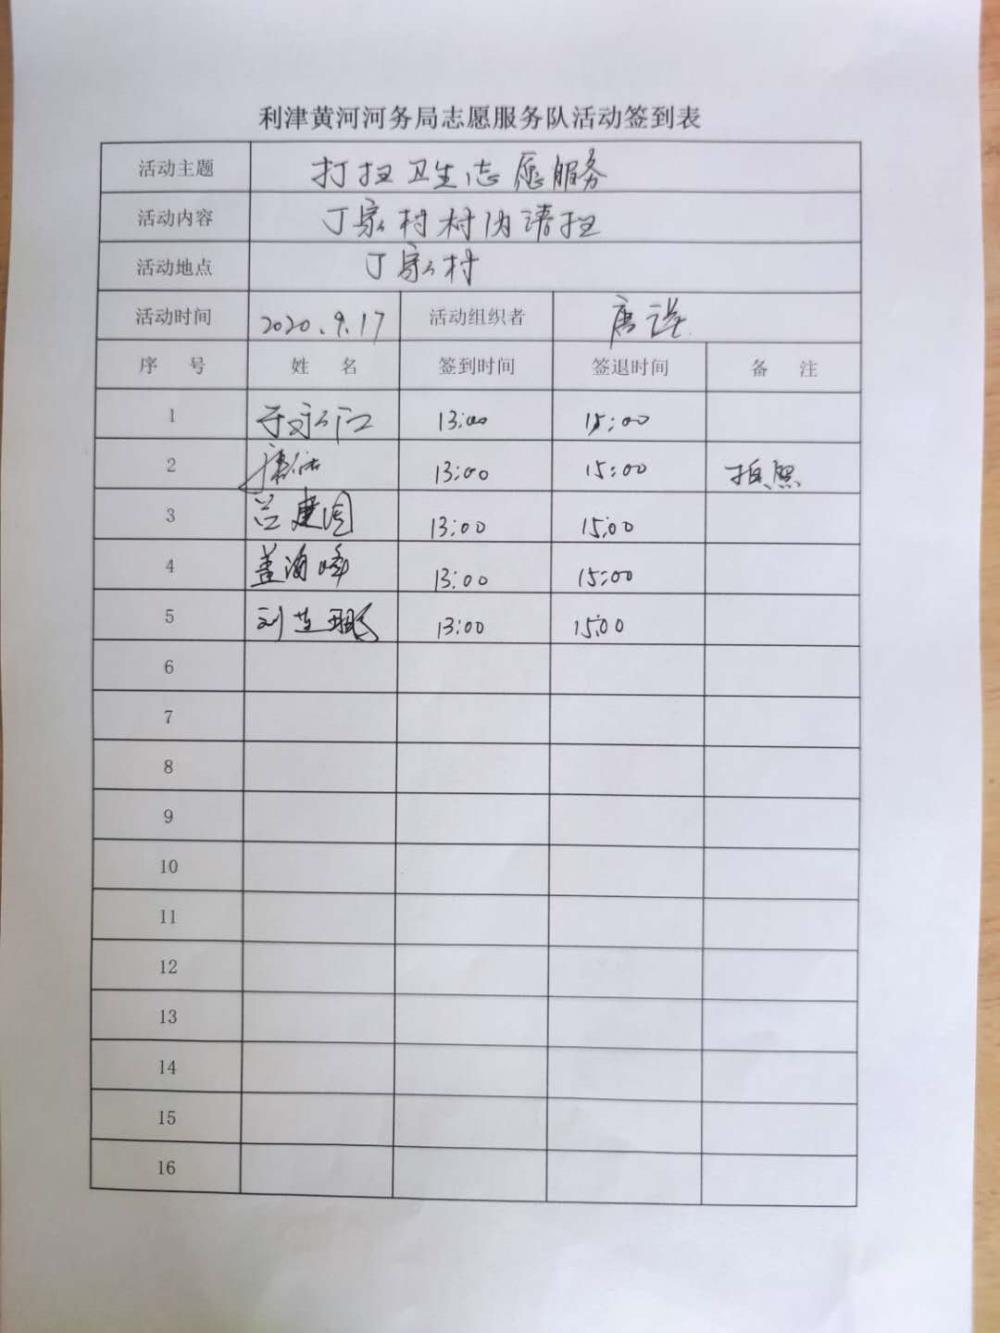 利津黄河河务局志愿服务队活动签到表
活动主题 打扫卫生志愿服务
活动内容 丁家村村内清扫
活动地点 丁家村
活动时间 2020.9.17 活动组织者 唐
序 号 姓 名 签到时间 签退时间 备 注
1 于永江 13:00 15:00
2 13:00 15:00 拍照
3 吕建国 13:00 15:00
4 盖海峰 13:00 15:00
5 刘 13:00 15:00
6
7
8
9
10
11
12
13
14
15
16